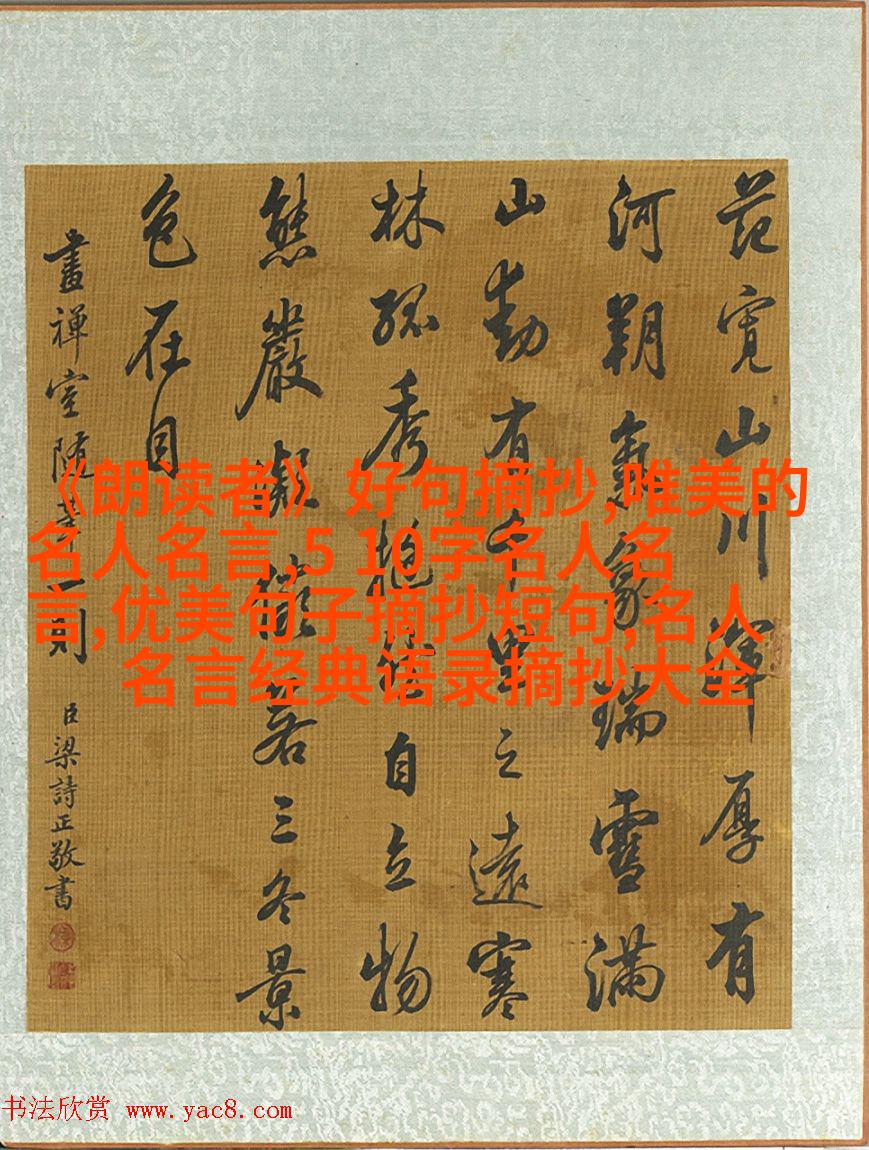 范寬山川渾厚有
河朔氣象瑞雪滿
山動有千里之遠寒
林孤秀挺然自立物
態嚴凝儼若三冬景
色在目
畫禪室隨筆一則
臣梁詩正敬書
《朗读者》好句摘抄,唯美的
名人名言,5 10字名人名
言,优美句子摘抄短句,名人
名言经典语录摘抄大全
书法欣赏 www.yac8.com